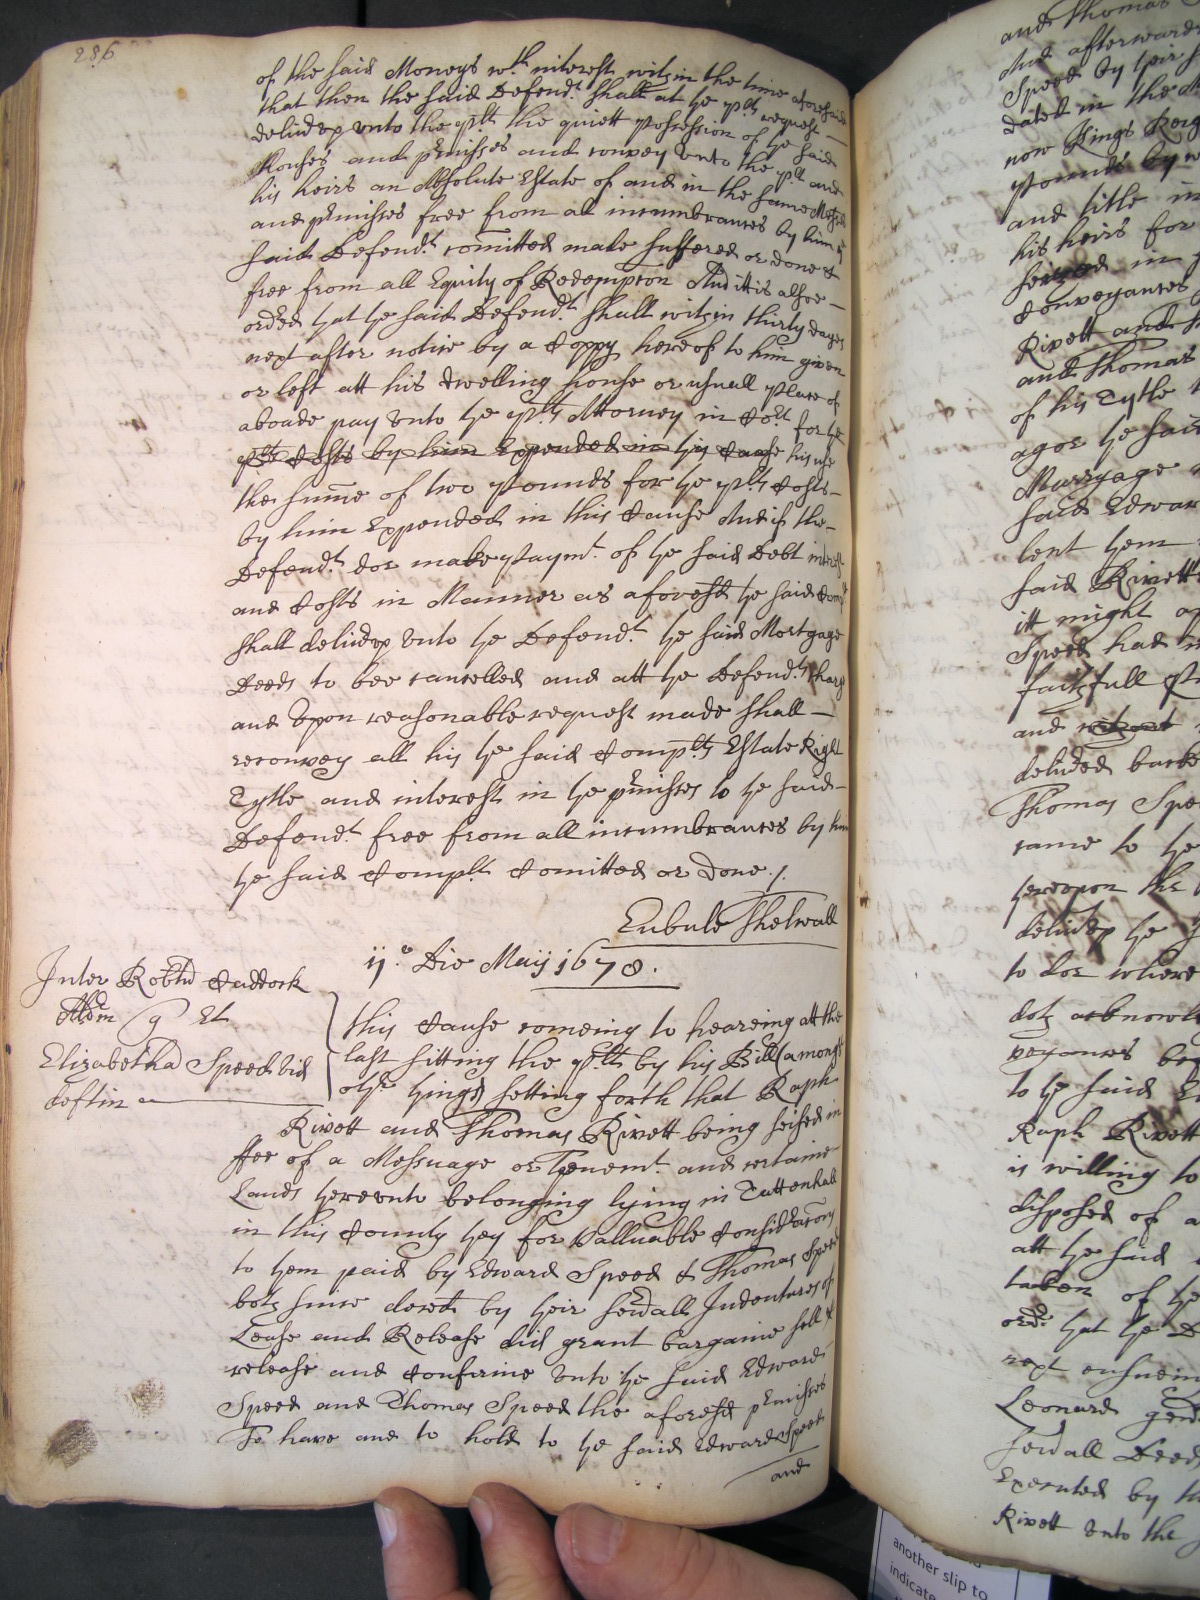 286
of the said Moneys wth interest within the time aforesaid
that then the said Defendt. shall at ye plts request —
deliver vnto the plt. the quiett possession of ye said
Houses and pmisses and convey vnto the plt. and
his heirs an Absolute Estate of and in the same
and pmisses free from all incumbrances by him ye
said Defendt. comitted made suffered or done &
free from all Equity of Redempcon And itt is alsoe —
ordred yat ye said Defendt. shall within thirty dayes
next after notice by a Coppy hereof to him given
or left att his dwelling house or usuall place of
aboade pay vnto ye plts Attorney in Cot. for ye
plts Costs by him Expended in this Cause his use
the sume of two pounds for ye plts Costs —
by him Expended in this Cause And if the —
Defendt. doe make paymt. of ye said Debt interest
and Costs in Manner as aforesd ye said Complt
shall deliver vnto ye Defendt. ye said Mortgage
Deeds to bee cancelled and att ye Defendts charg
and vpon reasonable request made shall —
reconvey all his ye said Complts Estate Right
Tytle and interest in ye pmisses to ye said —
Defendt. free from all incumbrances by him
ye said Complt. Comitted or done ./.
Eubule Thelwall
ij.o Die Maij 1678.
Inter Robtu Craddock
Adm q Et
Elizabetha Speed vid
deftin
This Cause comeing to heareing att the
last sitting the plt. by his Bill (amongst
other things) setting forth that Raph
Rivett and Thomas Rivett being seised in
ffee of a Messuage or Tenemt. and certaine
Lands therevnto belonging lying in Tattenhall
in this County they for Valluable Considracon
to them paid by Edward Speed & Thomas Speed
both since decd. by their sevrall Indentures of
Lease and Release did grant bargaine sell &
release and Confirme vnto ye said Edward
Speed and Thomas Speed the aforesd pmisses
To have and to hold to ye said Edward Speed
and
and Thomas
And afterwards
Speed by their
dated in the
now Kings Reig
pounds by
and title in
his heirs for
in
Conveyances
Rivett and
and Thomas
of his Tytle
agoe ye said
Marryage
said Edwar
lent them
said Rivett
itt might ap
Speed had
faithfull
and
delivred backe
Thomas Spe
came to ye
therevpon the
deliver ye
to doe where
doth acknowl
veyances
to ye said
Raph Rivett
is willing to
disposed of
att ye said
taken of ye
ordr. yat ye
next ensuein
Leonard gent
sevrall Deeds
Executed by
Rivett vnto the
another slip to
indicate